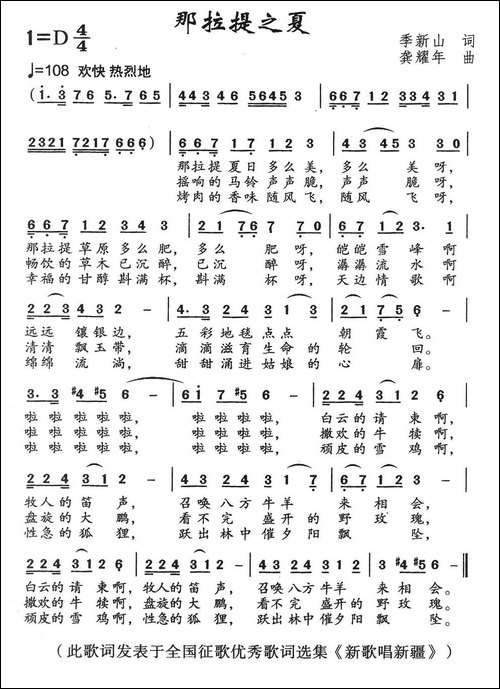 那拉提之夏
1=D 4/4
季新山 词
龚耀年 曲
♩=108 欢快 热烈地
( 1·3 7 6 5·7 6 5 | 4 4 3 4 6 5 6 4 5 3 | 6 6 7 1 2 3 3 4 3 1 |
2321 7217 6 6 6 ) | 6 6 7 1 7 1 2 3 | 4 3 4 5 3 3 0 |
那拉提夏日多么美, 多么 美 呀,
摇响的马铃声声脆, 声声 脆 呀,
烤肉的香味随风飞, 随风 飞 呀,
6 6 7 1 2 3 4 3 | 2 1 7 6 7 7 0 | 6 6 7 1 2 3· 1 |
那拉提草原多么肥, 多么 肥 呀, 皑皑雪 峰 啊
畅饮的草木已沉醉, 已沉 醉 呀, 潺潺流 水 啊
幸福的甘醇斟满杯, 斟满 杯 呀, 天边情 歌 啊
2 2 3 4 3 2 - | 4· 3 2 4 3 1 3 | 2 1 7 5 6 - |
远远 镶银边, 五 彩地毯点点 朝 霞 飞。
清清 飘玉带, 滴 滴滋育生命的 轮 回。
绵绵 流 淌, 甜 甜涌进姑娘的 心 扉。
3· 3 #4 #5 6 - | 6 1 7 #5 6 - | 2 2 4 3 1 2 6 |
啦 啦 啦 啦, 啦啦啦啦, 白云的请 柬啊,
啦 啦 啦 啦, 啦啦啦啦, 撒欢的牛 犊啊,
啦 啦 啦 啦, 啦啦啦啦, 顽皮的雪 鸡啊,
2 2 4 3 1 2 - | 4 4 3 2 4 3 1 | 3 2 1 2 - |
牧人的笛 声, 召唤八方牛羊 来 相会,
盘旋的大 鹏, 看不完 盛开的 野 玫 瑰,
性急的狐 狸, 跃出林中催夕阳 飘 坠,
2 2 4 3 1 2 6 | 2 2 4 3 1 2 - | 4 4 3 2 4 3 1 | 3 #4 #5 6 - ‖
白云的请 柬啊, 牧人的笛 声, 召唤八方牛羊 来 相会。
撒欢的牛 犊啊, 盘旋的大 鹏, 看不完 盛开的 野 玫瑰。
顽皮的雪 鸡啊, 性急的狐 狸, 跃出林中催夕阳 飘 坠。
(此歌词发表于全国征歌优秀歌词选集《新歌唱新疆》)